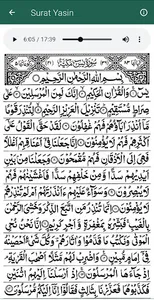 Surat Yasin
6:05 / 17:39
بِسْمِ اللهِ الرَّحْمٰنِ الرَّحِيْمِ
يٰسٓ وَالْقُرْاٰنِ الْحَكِيْمِ اِنَّكَ لَمِنَ الْمُرْسَلِيْنَ عَلٰى
صِرَاطٍ مُّسْتَقِيْمٍ تَنْزِيْلَ الْعَزِيْزِ الرَّحِيْمِ لِتُنْذِرَ قَوْمًا
مَّآ اُنْذِرَ اٰبَآؤُهُمْ فَهُمْ غٰفِلُوْنَ لَقَدْ حَقَّ الْقَوْلُ عَلٰٓى
اَكْثَرِهِمْ فَهُمْ لَا يُؤْمِنُوْنَ اِنَّا جَعَلْنَا فِيْٓ اَعْنَاقِهِمْ
اَغْلٰلًا فَهِيَ اِلَى الْاَذْقَانِ فَهُمْ مُّقْمَحُوْنَ وَجَعَلْنَا مِنْۢ بَيْنِ
اَيْدِيْهِمْ سَدًّا وَّمِنْ خَلْفِهِمْ سَدًّا فَاَغْشَيْنٰهُمْ فَهُمْ لَا
يُبْصِرُوْنَ وَسَوَآءٌ عَلَيْهِمْ ءَاَنْذَرْتَهُمْ اَمْ لَمْ تُنْذِرْهُمْ
لَا يُؤْمِنُوْنَ اِنَّمَا تُنْذِرُ مَنِ اتَّبَعَ الذِّكْرَ وَخَشِيَ الرَّحْمٰنَ
بِالْغَيْبِ فَبَشِّرْهُ بِمَغْفِرَةٍ وَّاَجْرٍ كَرِيْمٍ اِنَّا نَحْنُ نُحْيِ
الْمَوْتٰى وَنَكْتُبُ مَا قَدَّمُوْا وَاٰثَارَهُمْ وَكُلَّ شَيْءٍ اَحْصَيْنٰهُ
فِيْٓ اِمَامٍ مُّبِيْنٍ وَاضْرِبْ لَهُمْ مَّثَلًا اَصْحٰبَ الْقَرْيَةِ
اِذْ جَآءَهَا الْمُرْسَلُوْنَ اِذْ اَرْسَلْنَآ اِلَيْهِمُ اثْنَيْنِ
فَكَذَّبُوْهُمَا فَعَزَّزْنَا بِثَالِثٍ فَقَالُوْٓا اِنَّآ اِلَيْكُمْ